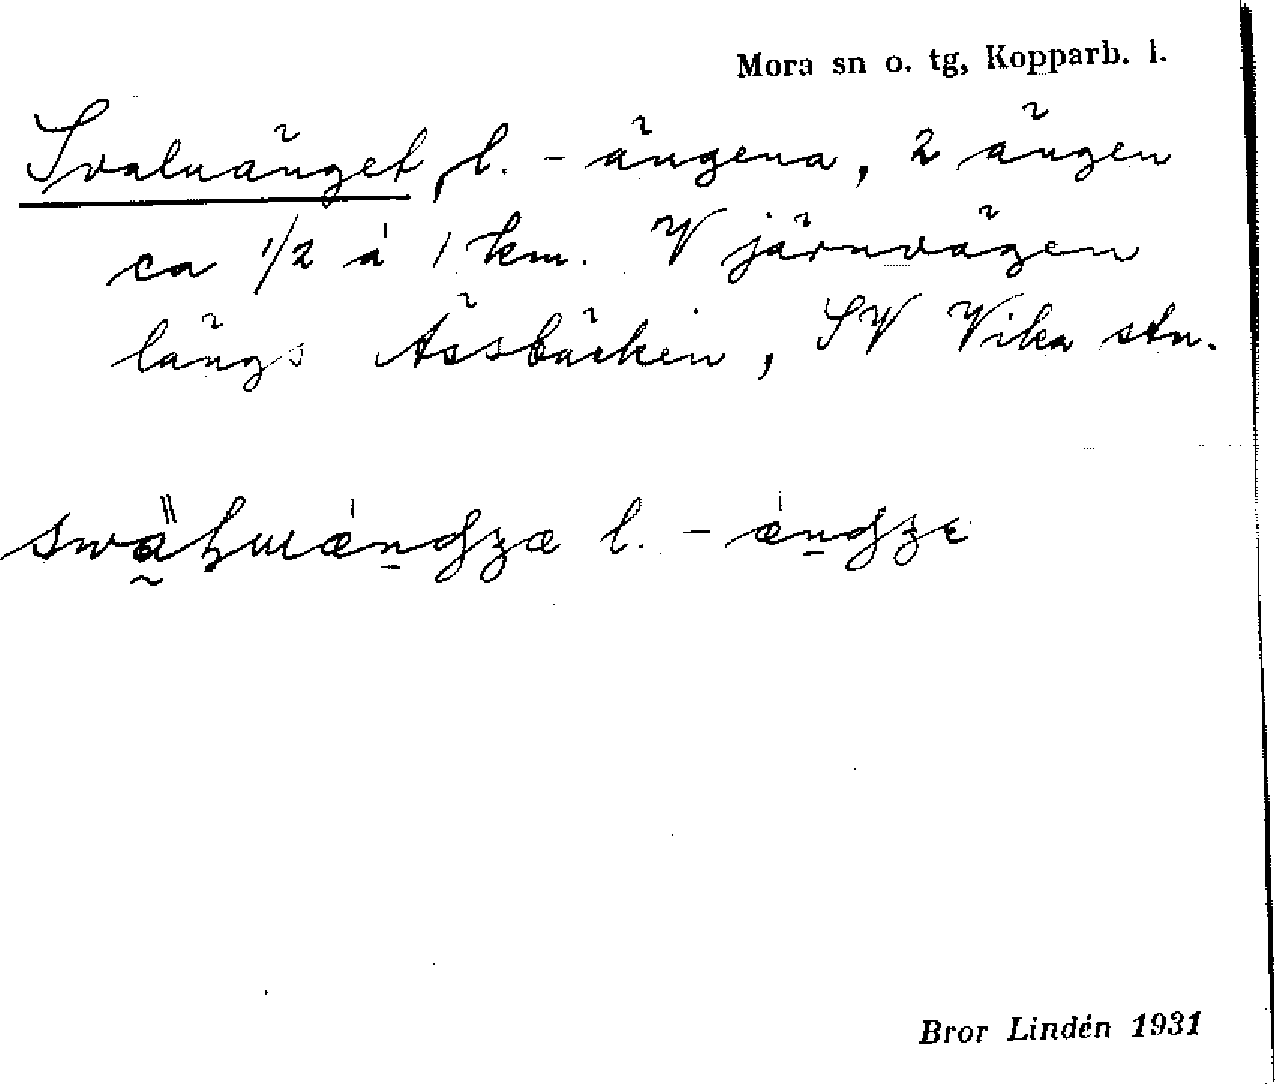 Mora sn o. tg, Kopparb. l.
Svaluänget, l. -ängena, 2 ängen
ca 1/2 à 1 km. V järnvägen
längs Ässbäcken, SV Vika stn.
l.
Bror Lindén 1931